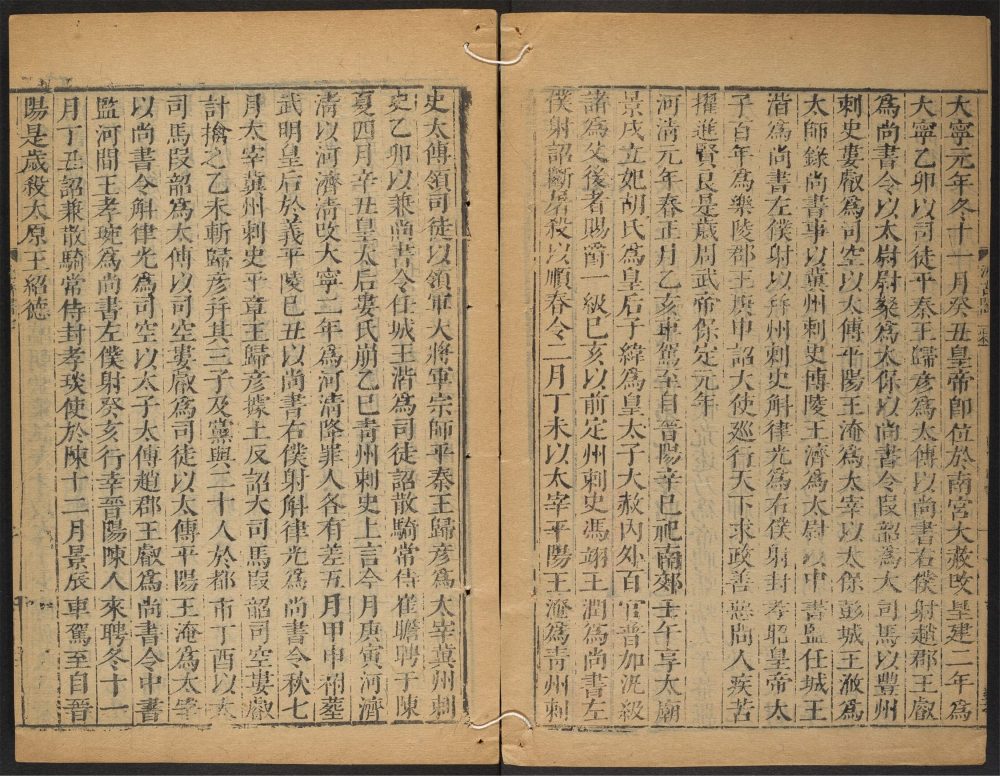 大寧元年冬十一月癸丑皇帝卽位於南宮大赦改皇建二年爲
大寧乙卯以司徒平秦王歸彥爲太傅以尚書右僕射趙郡王叡
爲尚書令以太尉尉粲爲太保以尚書令段韶爲大司馬以豐州
刺史婁叡爲司空以太傅平陽王淹爲太宰以太保彭城王浟爲
太師錄尚書事以冀州刺史博陵王濟爲太尉以中書監任城王
湝爲尚書左僕射以幷州刺史斛律光爲右僕射封孝昭皇帝太
子百年爲樂陵郡王庚申詔大使巡行天下求政善惡問人疾苦
擢進賢良是歲周武帝保定元年
河清元年春正月乙亥車駕至自晉陽辛巳祀南郊壬午享太廟
景戌立妃胡氏爲皇后子緯爲皇太子大赦內外百官普加汎級
諸爲父後者賜爵一級己亥以前定州刺史馮翊王潤爲尚書左
僕射詔斷屠殺以順春令二月丁未以太宰平陽王淹爲靑州刺
史太傅領司徒以領軍大將軍宗師平秦王歸彥爲太宰冀州刺
史乙卯以兼尚書令任城王湝爲司徒詔散騎常侍崔瞻聘于陳
夏四月辛丑皇太后婁氏崩乙巳靑州刺史上言今月庚寅河濟
清以河濟清改大寧二年爲河清降罪人各有差五月甲申祔葬
武明皇后於義平陵己丑以尚書右僕射斛律光爲尚書令秋七
月太宰冀州刺史平章王歸彥據土反詔大司馬段韶司空婁叡
討擒之乙未斬歸彥幷其三子及黨與二十人於都市丁酉以大
司馬段韶爲太傅以司空婁叡爲司徒以太傅平陽王淹爲太宰
以尚書令斛律光爲司空以太子太傅趙郡王叡爲尚書令中書
監河間王孝琬爲尚書左僕射癸亥行幸晉陽陳人來聘冬十一
月丁丑詔兼散騎常侍封孝琰使於陳十二月景辰車駕至自晉
陽是歲殺太原王紹德